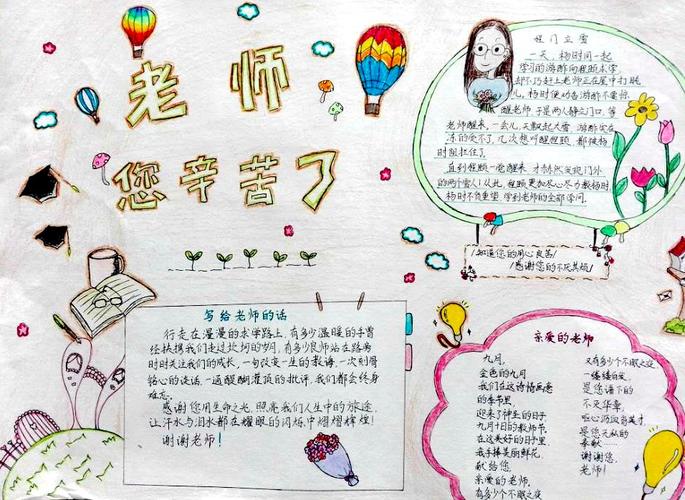 老师
您辛苦了
程门立雪
一天，杨时同一起
学习的游酢向程颐求学，
却不巧赶上老师正在屋中打盹
儿。杨时便劝告游酢不要惊
醒老师，于是两人静立门口，等
老师醒来。一会儿，天飘起大雪，游酢实在
冻的受不了，几次想叫醒程颐，都被杨
时阻拦住了。
直到程颐一觉醒来，才赫然发现门外
的两个雪人！从此，程颐更加尽心尽力教杨时，
杨时不负重望，学到老师的全部学问。
知道您的用心良苦
感谢您的不厌其烦
写给老师的话
行走在漫漫的求学路上，有多少温暖的手曾
经扶携我们走过坎坷的岁月，有多少良师站在路旁
时时关注我们的成长，一句改变一生的教诲，一次刻骨
铭心的谈话，一通醍醐灌顶的批评，我们都会终身
难忘。
感谢您用生命之光，照亮我们人生中的旅途，
让汗水与泪水都在耀眼的闪烁中熠熠辉煌！
谢谢老师！
亲爱的老师
九月，
金色的九月
我们在这诗情画意
的季节里，
迎来了神圣的日子
九月十日的教师节，
在这美好的日子里，
我手捧美丽鲜花，
献给您，
亲爱的老师，
有多少个不眠之夜
又有多少个不眠之夜
一缕缕白发，
是您谱下的
不灭华章，
呕心沥血育英才，
是您无私的
奉献……
谢谢您，
老师！